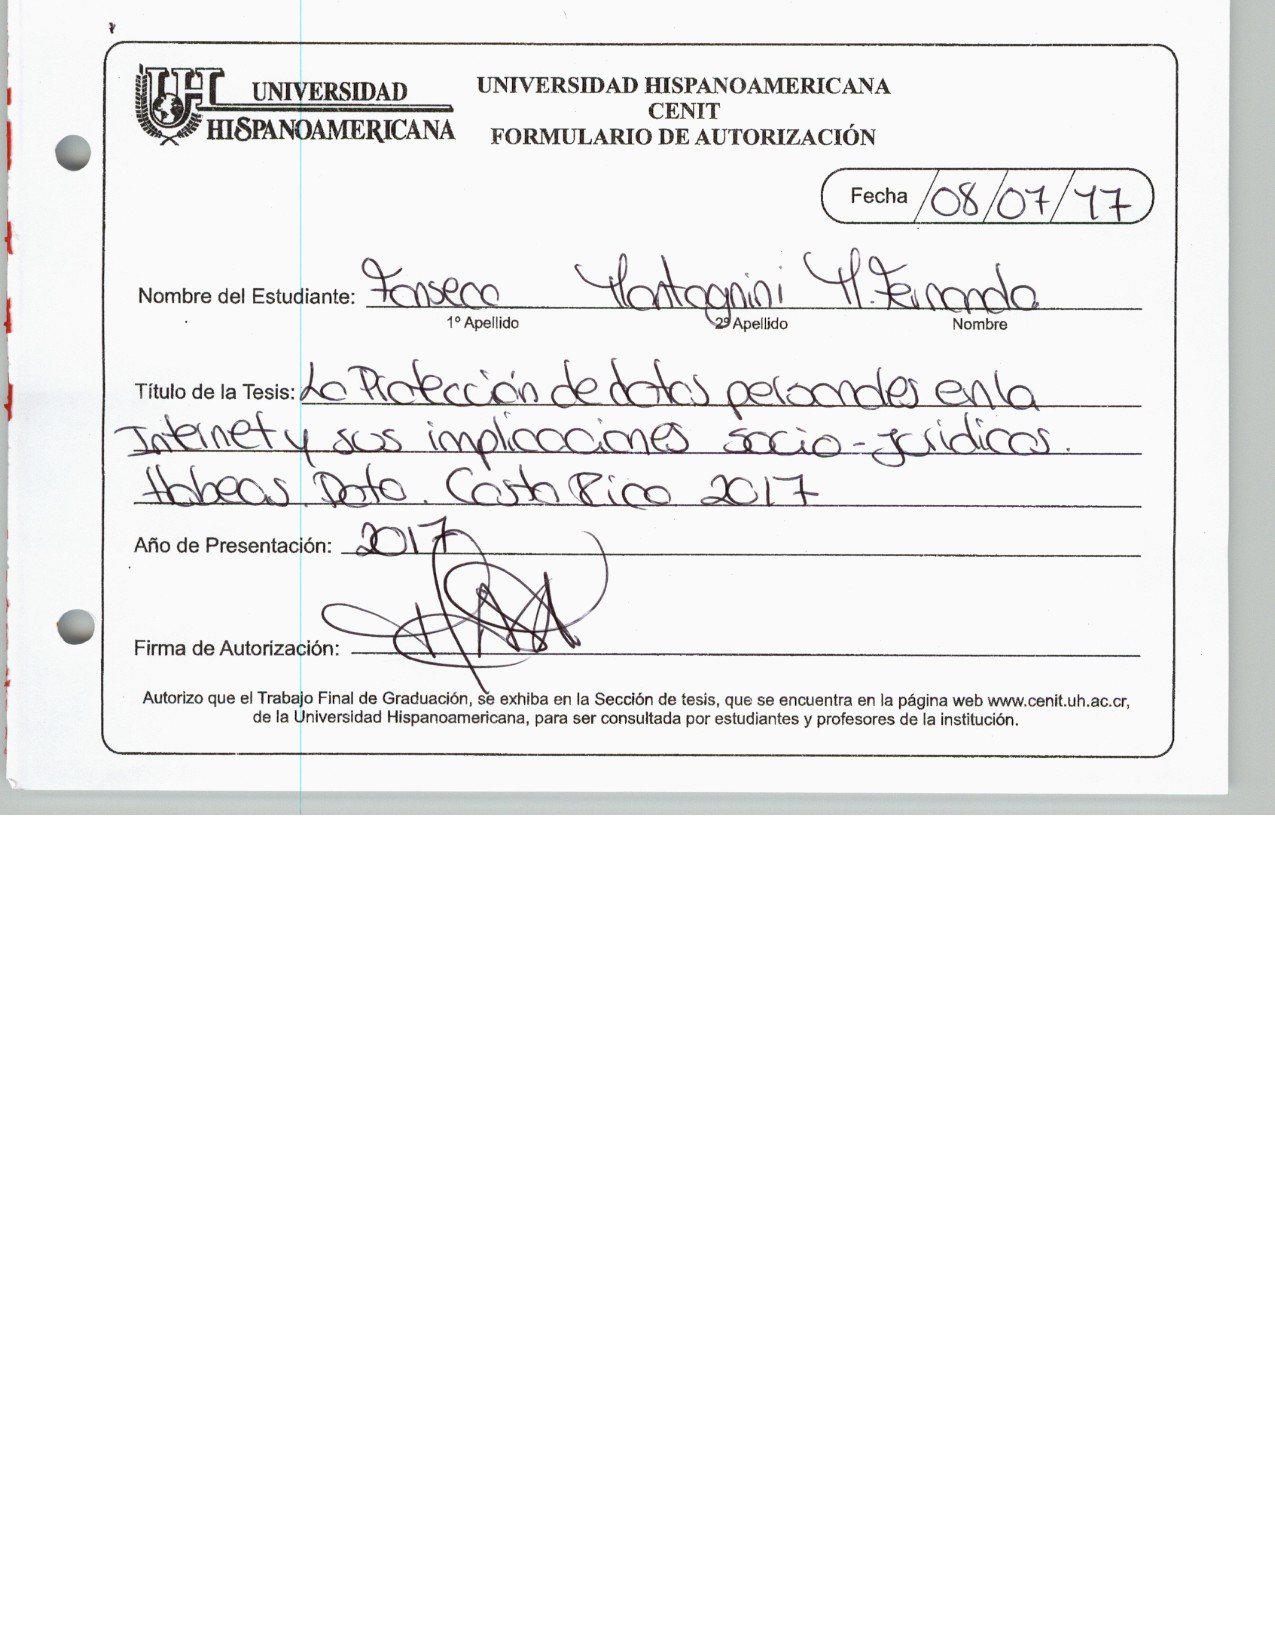 UNIVERSIDAD
HISPANOAMERICANA
UNIVERSIDAD HISPANOAMERICANA
CENIT
FORMULARIO DE AUTORIZACIÓN
Fecha /08/07/17
Nombre del Estudiante: Fonseca Montagnini M. Fernanda
1º Apellido 2º Apellido Nombre
Título de la Tesis: La Protección de datos personales en la
Internet y sus implicaciones socio-jurídicas.
Habeas Data. Costa Rica 2017
Año de Presentación: 2017
Firma de Autorización:
Autorizo que el Trabajo Final de Graduación, se exhiba en la Sección de tesis, que se encuentra en la página web www.cenit.uh.ac.cr,
de la Universidad Hispanoamericana, para ser consultada por estudiantes y profesores de la institución.